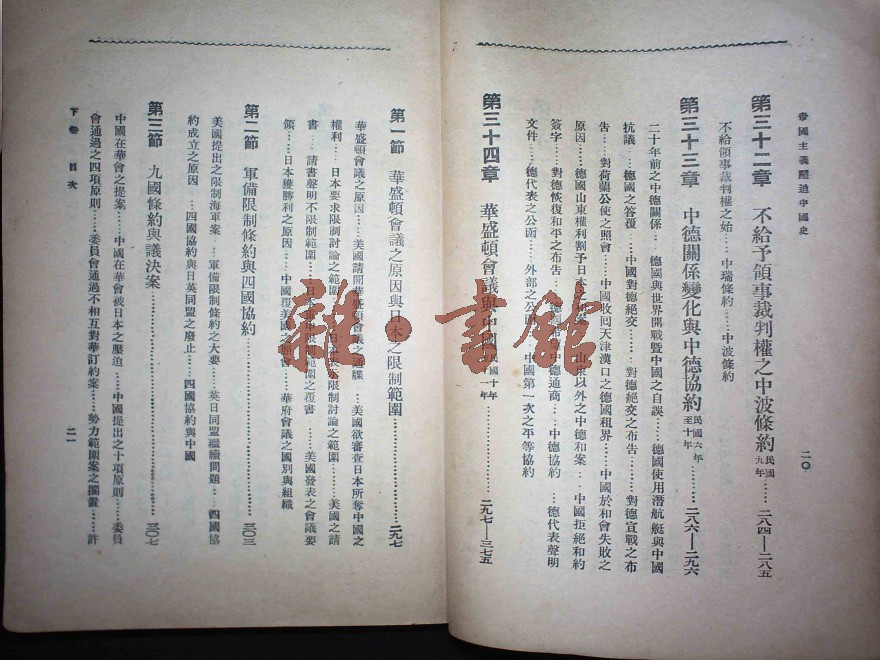 帝國主義壓迫中國史
二〇
第三十二章 不給予領事裁判權之中波條約民國九年……二八四—二八五
不給領事裁判權之始……中瑞條約……中波條約
第三十三章 中德關係變化與中德協約民國六年至十年……二八六—二九六
二十年前之中德關係……德國與世界開戰暨中國之自誤……德國使用潛航艇與中國
抗議……德國之答覆……中國對德絕交……對德絕交之布告……對德宣戰之布
告……對荷蘭公使之照會……中國收回天津漢口之德國租界……中國於和會失敗之
原因……德國山東權利割予日本之……山東以外之中德和案……中國拒絕和約
簽字……對德恢復和平之布告……中德通商……中德協約……德代表聲明
文件……德代表之公函……外部之公函……中國第一次之平等協約
第三十四章 華盛頓會議與中國民國十年十一年……二九七—三七五
第一節 華盛頓會議之原因與日本之限制範圍……二九七
華盛頓會議之原因……美國請開華盛頓會議之通牒……美國欲審查日本所奪中國之
權利……日本要求限制討論之範圍……日本要求限制討論之範圍……美國之請
書……請書聲明不限制範圍……日本限制範圍之覆書……美國發表之會議要
領……日本獲勝利之原因……中國覆美國之照會……華府會議之國別與組織
第二節 軍備限制條約與四國協約……三〇三
美國提出之限制海軍案……軍備限制條約之大要……英日同盟繼續問題……四國協
約成立之原因……四國協約與日英同盟之廢止……四國協約與中國
第三節 九國條約與議決案……三〇七
中國在華會之提案……中國在華會被日本之壓迫……中國提出之十項原則……委員
會通過之四項原則……委員會通過不相互對華訂約案……勢力範圍案之擱置……許
下卷 目次
二一
雜·書館